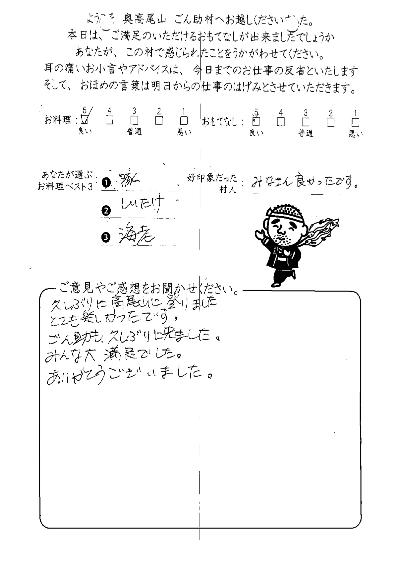 ようこそ 奥高尾山 ごん助村へお越しくださいました。
本日は、ご満足のいただけるおもてなしが出来ましたでしょうか
あなたが、この村で感じられたことをうかがわせてください。
耳の痛いお小言やアドバイスは、今日までのお仕事の反省といたします
そして、おほめの言葉は明日からの仕事のはげみとさせていただきます。
お料理: 5 4 3 2 1 おもてなし: 5 4 3 2 1
良い 普通 悪い 良い 普通 悪い
あなたが選ぶ
お料理ベスト3
❶ 豚
❷ しいたけ
❸ 海老
好印象だった
村人: みなさん良かったです。
ご意見やご感想をお聞かせください。
久しぶりに高尾山に登りました
とても楽しかったです。
ごん助も、久しぶりに来ました。
みんな大満足でした。
ありがとうございました。